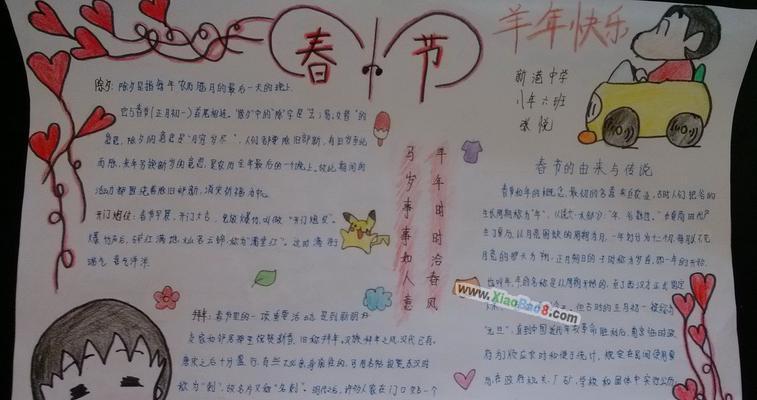 春节
羊年快乐
新港中学
八年六班
张悦
除夕:除夕是指每年农历腊月的最后一天的晚上
它与春节(正月初一)首尾相连。"除夕"中的"除"字是"去;易;交替"的
意思,除夕的意思是"月穷岁尽",人们都要除旧部新,有旧岁至此
而除,来年另换新岁的意思,是农历全年最后的一个晚上。故此期间的
活动都围绕着除旧部新,消灾祈福为中心
开门炮仗:春节早晨,开门大吉,先放爆竹,叫做"开门炮仗"。
爆竹声后,碎红满地,灿若云锦,称为"满堂红"。这时满街
瑞气 喜气洋洋
拜年:春节里的一项重要活动,是到新朋好
友家和邻居那里
称为"刺",故名片又称"名刺"。明代之后,许多人家在门口
羊年时时沾春风
马岁事事如人意
春节的由来与传说
春节和年的概念,最初的含意来自农业,古时人们把谷的
生长周期称为"年",
在夏商时代产
生了夏历,以月亮圆缺的周期为月,一年划分为十二个月,每月以不见
月亮的那天为朔,正月朔日的子时称为岁首,即一年的开始,
也叫年,年的名称是从周朝开始的,直到西汉才正式固定
但古时的正月初一被称为
"元旦",直到中国近代辛亥革命胜利后,南京临时政
府为了顺应农时和便于统计,规定在民间使用夏
历,在政府机关、厂矿、学校和团体中实行公历
www.XiaoBao8.com